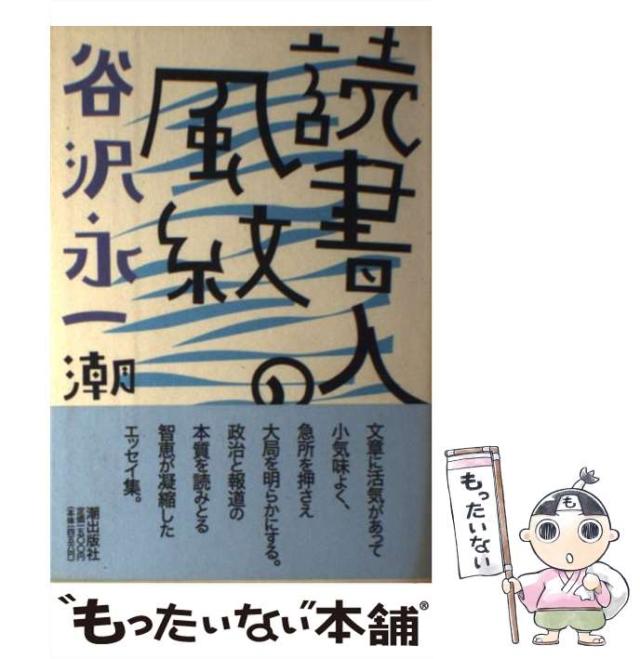 読書人の
風紋
谷沢永一
潮
文章に活気があって
小気味よく、
急所を押さえ
大局を明らかにする。
政治と報道の
本質を読みとる
智恵が凝縮した
エッセイ集。
潮出版社
定価一五〇〇円
も
もったいない
“もったいない”本舗®